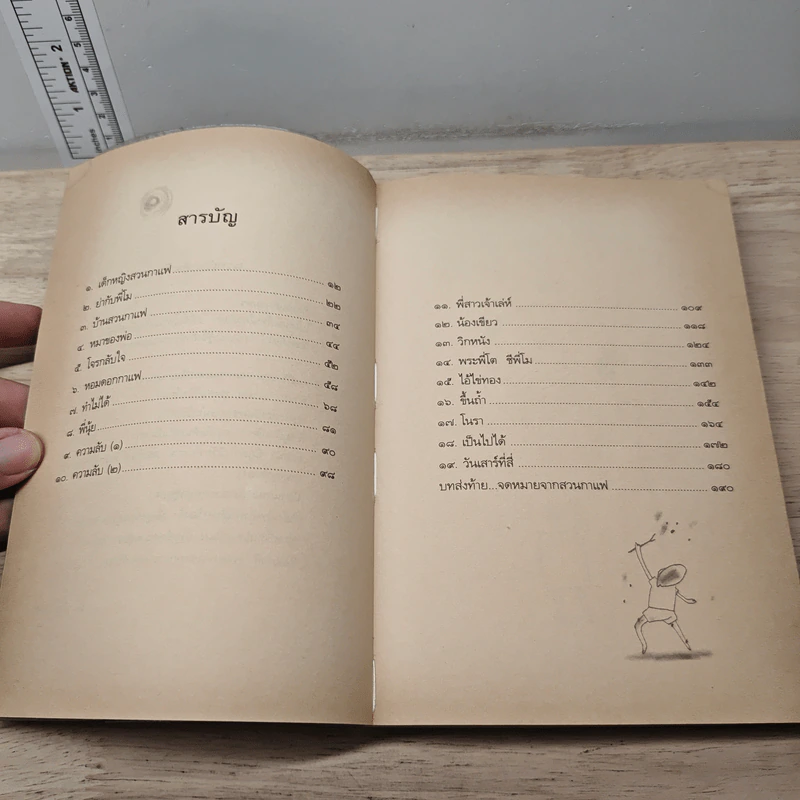 สารบัญ
๑. เด็กหญิงสวนกาแฟ ๑๒
๒. ย่ากับพี่โม ๒๒
๓. บ้านสวนกาแฟ ๓๔
๔. หมาของพ่อ ๔๔
๕. โจรกลับใจ ๕๒
๖. หอมดอกกาแฟ ๕๘
๗. ทำไม่ได้ ๖๘
๘. พี่นุ้ย ๘๑
๙. ความลับ (๑) ๙๐
๑๐. ความลับ (๒) ๙๘
๑๑. พี่สาวเจ้าเล่ห์ ๑๐๙
๑๒. น้องเขียว ๑๑๘
๑๓. วิกหนัง ๑๒๔
๑๔. พระพี่โต ชีพี่โม ๑๓๓
๑๕. ไอ้ไข่ทอง ๑๔๒
๑๖. ขึ้นถ้ำ ๑๕๔
๑๗. โนรา ๑๖๔
๑๘. เป็นไปได้ ๑๗๒
๑๙. วันเสาร์ที่สี่ ๑๘๐
บทส่งท้าย...จดหมายจากสวนกาแฟ ๑๙๐
AKTION
inches 1 2
3 4 5 6